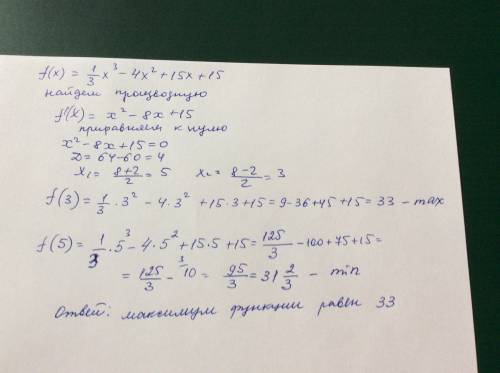 f(x) = 1/3 x³ - 4x² + 15x + 15
найдем производную
f'(x) = x² - 8x + 15
приравняем к нулю
x² - 8x + 15 = 0
D = 64 - 60 = 4
x₁ = (8+2)/2 = 5 x₂ = (8-2)/2 = 3
f(3) = 1/3 · 3² - 4·3² + 15·3 + 15 = 9 - 36 + 45 + 15 = 33 - max
f(5) = 1/3 · 5³ - 4·5² + 15·5 + 15 = 125/3 - 100 + 75 + 15 =
= 125/3 - ³10 = 95/3 = 31 2/3 - min
Ответ: максимум функции равен 33